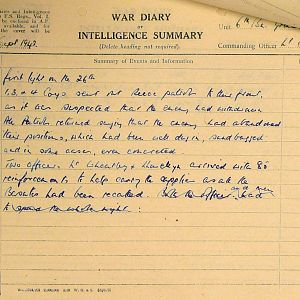 WAR DIARY
or
INTELLIGENCE SUMMARY
(Delete heading not required).
Unit
Commanding Officer Lt
Summary of Events and Information
aries and Intelligence
F.S. Regs., Vol. I.
be enclosed in A.F.
available, and
the cover will be
Sept 1943.
first light on the 26th
1, 3, & 4 Coys sent out Recce patrols to their front,
as it was suspected that the enemy had withdrawn
the Patrols returned saying that the enemy had abandoned
their positions, which had been well dug in, sandbagged
and in some cases, even concreted
Two officers, Lt and arrived with 80
reinforcements to help carry the supplies as all the
had been recalled. Both the officers and men had
to spend the whole night